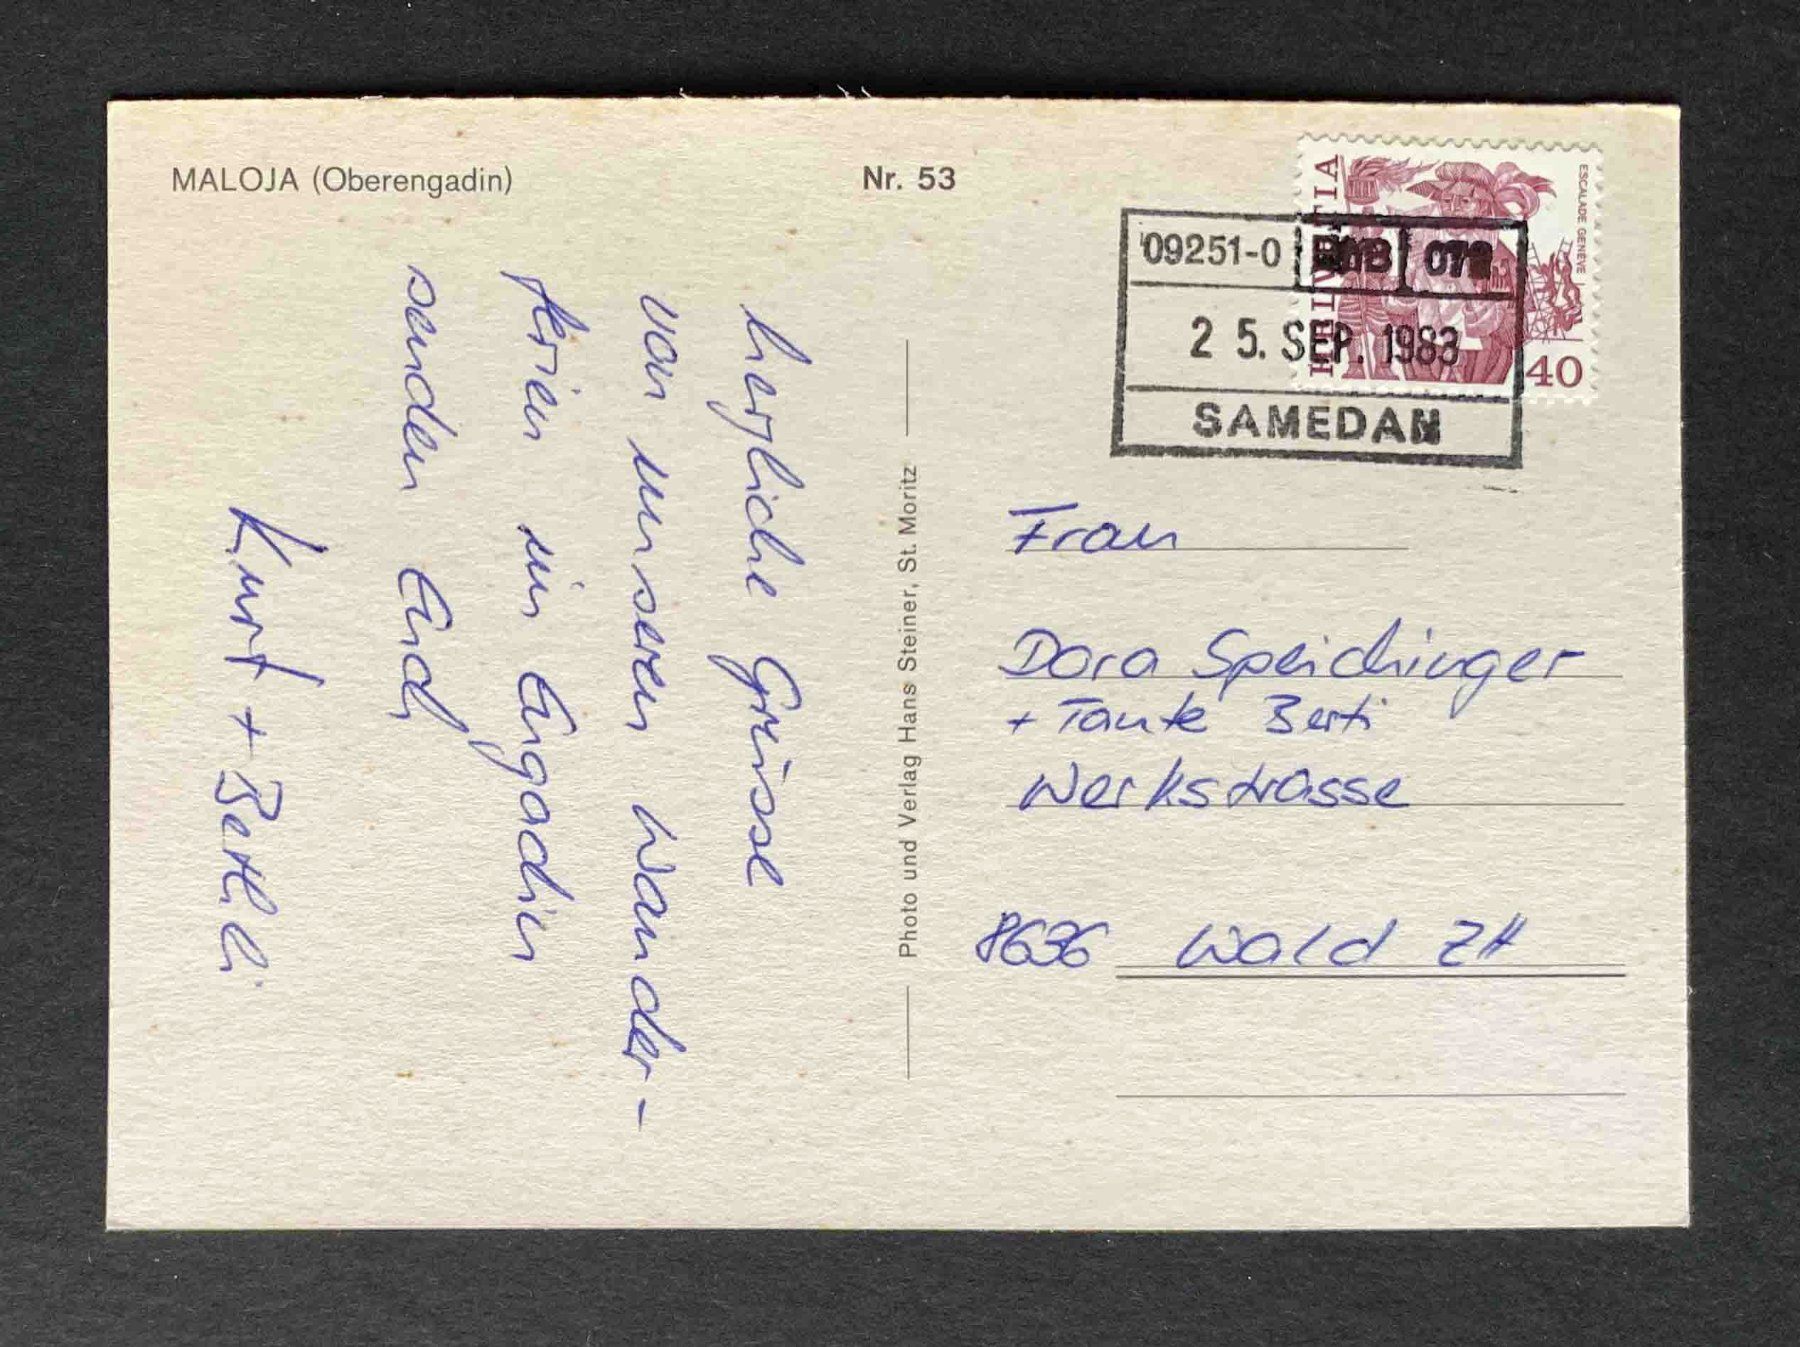 MALOJA (Oberengadin)
Nr. 53
herzliche Grüsse
von unseren Wander-
ferien im Engadin
senden Euch
Kurt + Bethli
Photo und Verlag Hans Steiner, St. Moritz
HELVETIA
ESCALADE GENÈVE
40
09251-0
25. SEP. 1983
SAMEDAN
Frau
Dora Speichinger
+ Tante Berti
Werkstrasse
8636 Wald ZH